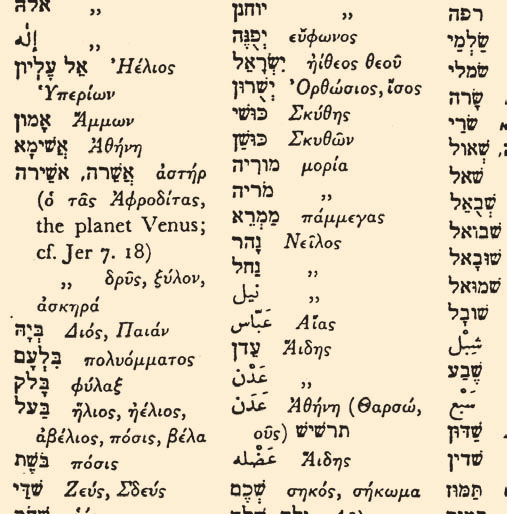 אלה „
إله „
אֵל עֶלְיוֹן Ἥλιος
Ὑπερίων
אָמוֹן Ἄμμων
אֲשִׁימָא Ἀθήνη
אֲשֵׁרָה, אשֵׁירה ἀστήρ
(ὁ τᾶς Ἀφροδίτας,
the planet Venus;
cf. Jer 7. 18)
„ δρῦς, ξύλον,
ἀσκηρά
בְּיָהּ Διός, Παιάν
בִּלְעָם πολυόμματος
בָּלָק φύλαξ
בַּעַל ἥλιος, ἠέλιος,
ἀβέλιος, πόσις, βέλα
בֹּשֶׁת πόσις
שַׁדַּי Ζεύς, Σδεύς
יוחנן „
יְפֻנֶּה εὔφωνος
יִשְׂרָאֵל ἠίθεος θεοῦ
יְשֻׁרוּן Ὀρθώσιος, ἴσος
כּוּשִׁי Σκύθης
כּוּשָׁן Σκυθῶν
מוֹרִיָּה μορία
מֹרִיה „
מַמְרֵא πάμμεγας
נָהָר Νεῖλος
נַחַל „
نيل „
عَبّاس Αἴας
עֵדֶן Ἅιδης
عَدْن „
عَدَن Ἀθήνη (Θαρσώ,
οῦς) תרשׁישׁ
عَضْله Ἅιδης
שְׁכֶם σηκός, σήκωμα
רפה
שַׂלְמַי
שׂמלי
שָׂרָה
שָׂרַי
שָׁאוּל
שׁאל
שְׁבֻאֵל
שׁבואל
שׁוּבָאֵל
שׁמוּאל
שׁוֹבָל
شِبْل
שֶׁבַע
سَبْع
שַׁדּוּן
שׁדין
תַּמּוּז